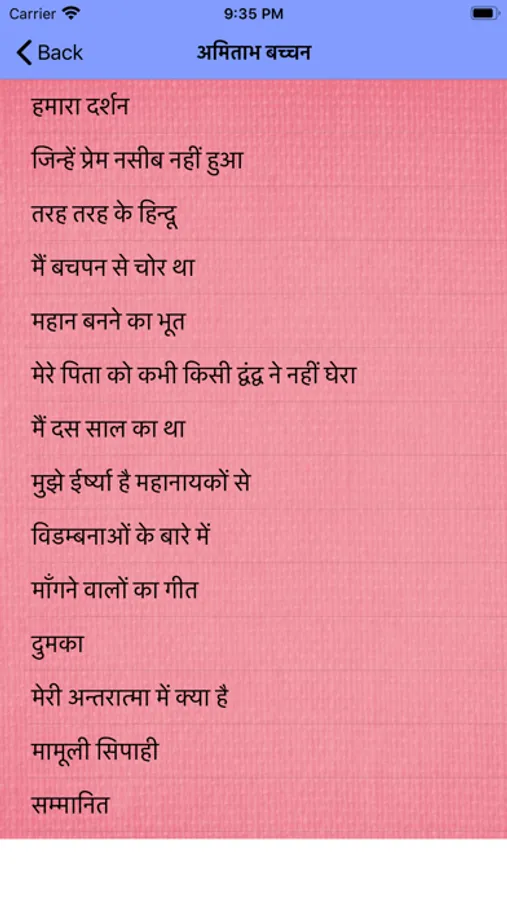 Carrier 9:35 PM
Back अमिताभ बच्चन
हमारा दर्शन
जिन्हें प्रेम नसीब नहीं हुआ
तरह तरह के हिन्दू
मैं बचपन से चोर था
महान बनने का भूत
मेरे पिता को कभी किसी द्वंद्व ने नहीं घेरा
मैं दस साल का था
मुझे ईर्ष्या है महानायकों से
विडम्बनाओं के बारे में
माँगने वालों का गीत
दुमका
मेरी अन्तरात्मा में क्या है
मामूली सिपाही
सम्मानित